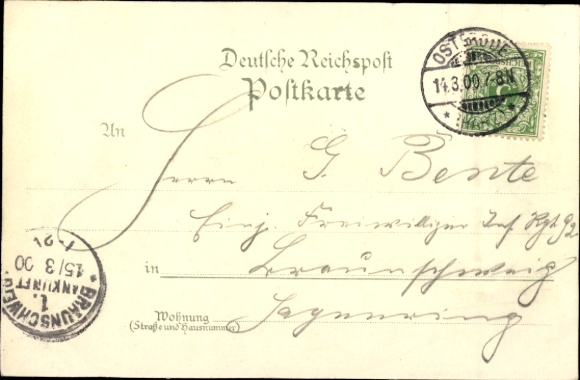 Deutsche Reichspost
Postkarte
OSTERODE
14.3.00 7-8N
* (HARZ) *
An
Herrn G. Bente
Einj. Freiwilliger Inf Rgt 92
in Braunschweig
Wohnung
(Straße und Hausnummer)
BRAUNSCHWEIG
1.
ANKUNFT
15/3 00